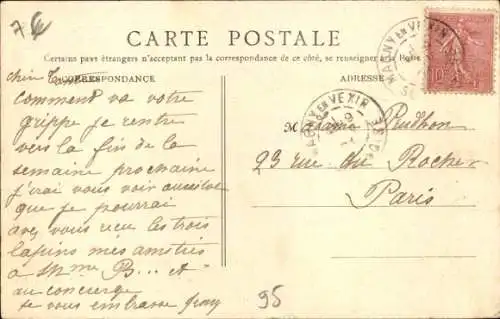 7 €
CARTE POSTALE
Certains pays étrangers n'acceptant pas la correspondance de ce côté, se renseigner à la Poste
CORRESPONDANCE
ADRESSE
MAGNY EN VEXIN
10
chère Tante
comment va votre
grippe je rentre
vers la fin de la
semaine prochaine
j'irai vous voir aussitôt
que je pourrai
avez vous reçu les trois
lapins mes amitiés
à Mme B... et
au concierge
je vous embrasse
MAGNY EN VEXIN
9
S.-&-O.
Madame Prudhon
23 rue du Rocher
Paris
95